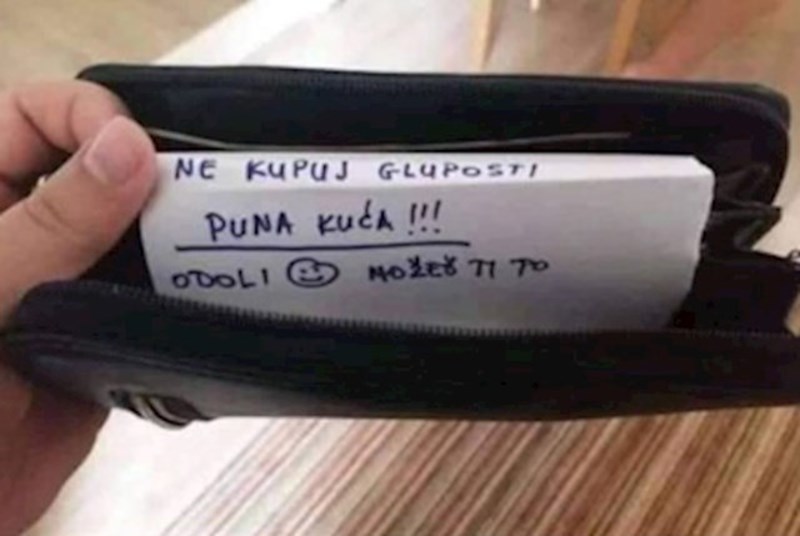 NE KUPUJ GLUPOSTI
PUNA KUĆA!!!
ODOLI MOŽEŠ TI TO